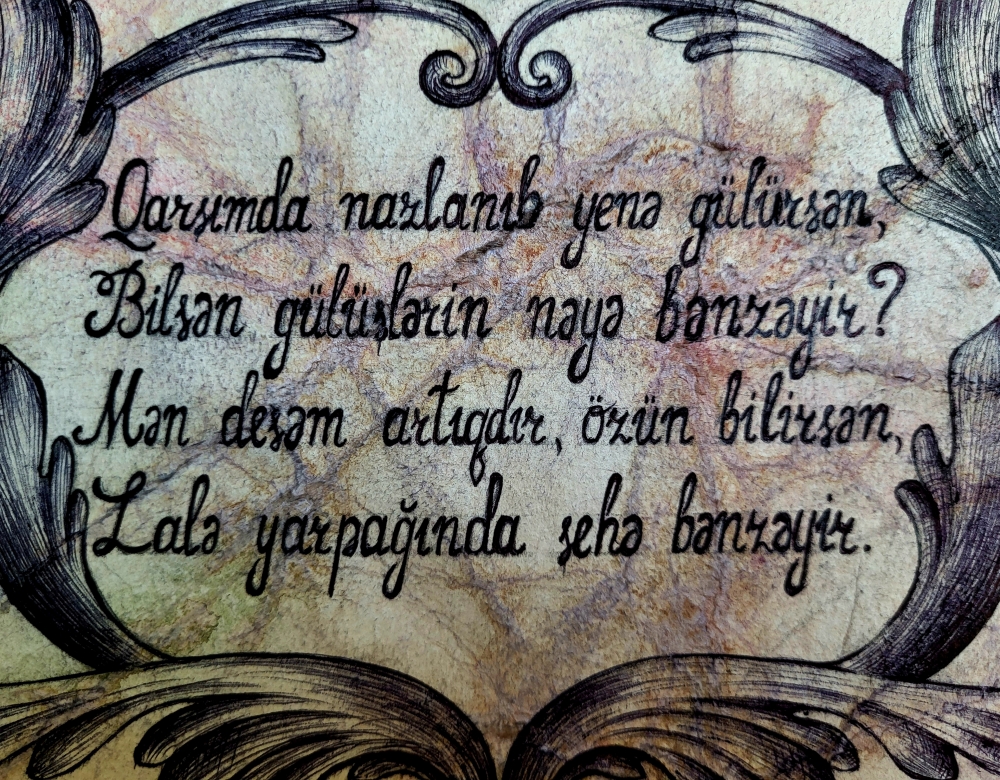 Qarşımda nazlanıb yenə gülürsən,
Bilsən gülüşlərin nəyə bənzəyir?
Mən desəm artıqdır, özün bilirsən,
Lalə yarpağında şehə bənzəyir.